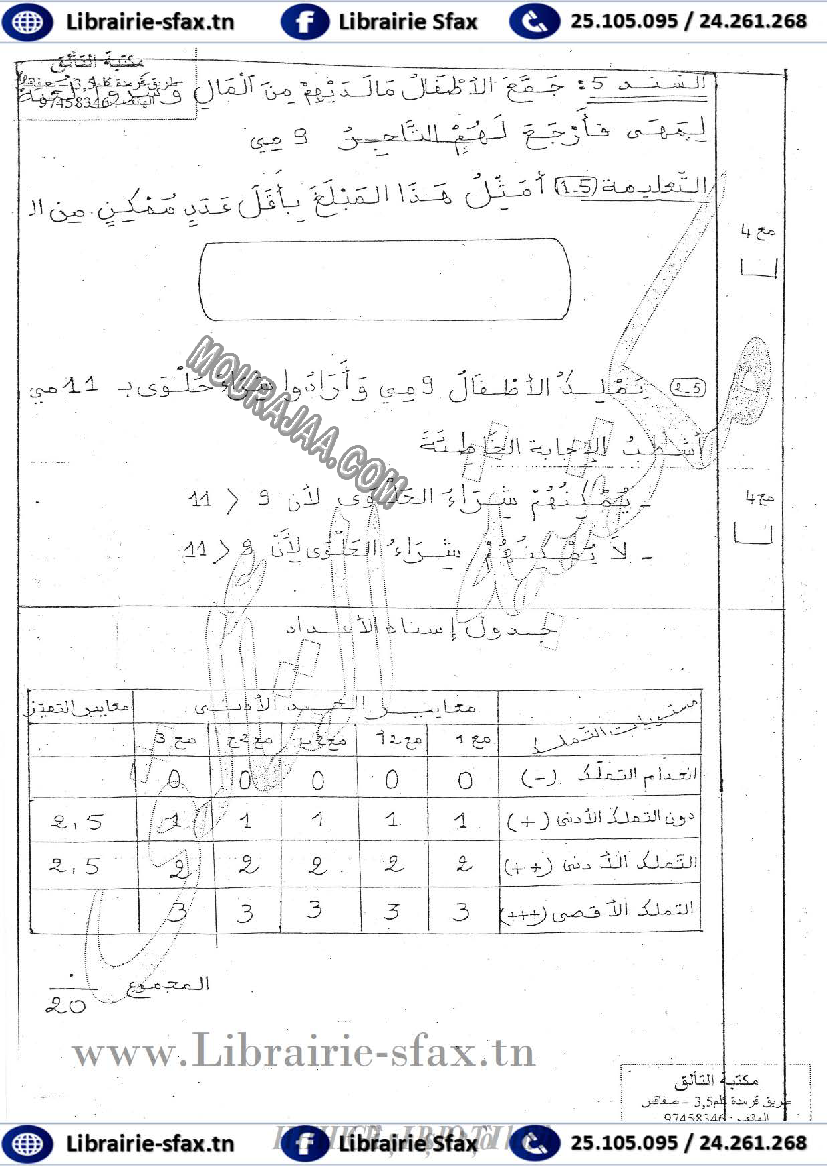 Librairie-sfax.tn Librairie Sfax 25.105.095 / 24.261.268
مكتبة التألق
طريق قرمدة كلم 3,5 – صفاقس
الهاتف : 97458346
السّند 5 : جَمَّعَ الأَطْفَالُ مَا لَدَيْهِمْ مِنَ الْمَالِ
فَأَرْجَعَ لَهُمْ التَّاجِرُ 9 مي
التّعليمة (1.5) أُمَثِّلُ هَذَا المَبْلَغَ بِأَقَلَّ عَدَدٍ مُمْكِنٍ مِنَ الـ
مع 4
MOURAJAA.COM
(2.5) يَمْلِكُ الأَطْفَالُ 9 مي وَأَرَادُوا شِرَاءَ حَلْوَى بـ 11 مي
أشطب الإجابة الخَاطِئَة
- يُمْكِنُهُمْ شِرَاءُ الحَلْوَى لأن 9 > 11
مع 4
- لَا يُمْكِنُهُمْ شِرَاءُ الحَلْوَى لِأَنَّ 9 > 11
جدول إسناد الأعداد
مستويات التملك معايير الحد الأدنى معايير التميّز
مع 1 مع 2أ مع 2ب مع 2ج مع 3
انعدام التملّك (-) 0 0 0 0 0
دون التملك الأدنى (+) 1 1 1 1 1 2,5
التملك الأدنى (++) 2 2 2 2 2 2,5
التملك الأقصى (+++) 3 3 3 3 3
المجموع . / 20
www.Librairie-sfax.tn
مكتبة التألق
طريق قرمدة كلم 3,5 – صفاقس
الهاتف : 97458346
Librairie-sfax.tn Librairie Sfax 25.105.095 / 24.261.268